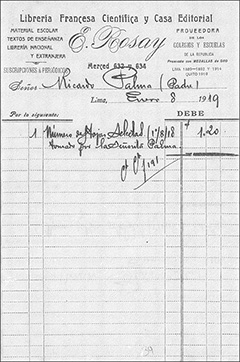 Librería Francesa Científica y Casa Editorial
MATERIAL ESCOLAR
TEXTOS DE ENSEÑANZA
LIBRERÍA NACIONAL
Y EXTRANJERA
E. Rosay
PROVEEDORA
DE LOS
COLEGIOS Y ESCUELAS
DE LA REPUBLICA
Premiada con MEDALLAS de ORO
QUITO 1910
Merced 632 y 634
SUSCRIPCIONES A PERIÓDICOS
Señor Ricardo Palma (Padre)
Lima, Enero 8 1919
Por lo siguiente:
DEBE
1 Número de Hojas Selectas (1/8/18 1.20
tomado por la Señorita Palma